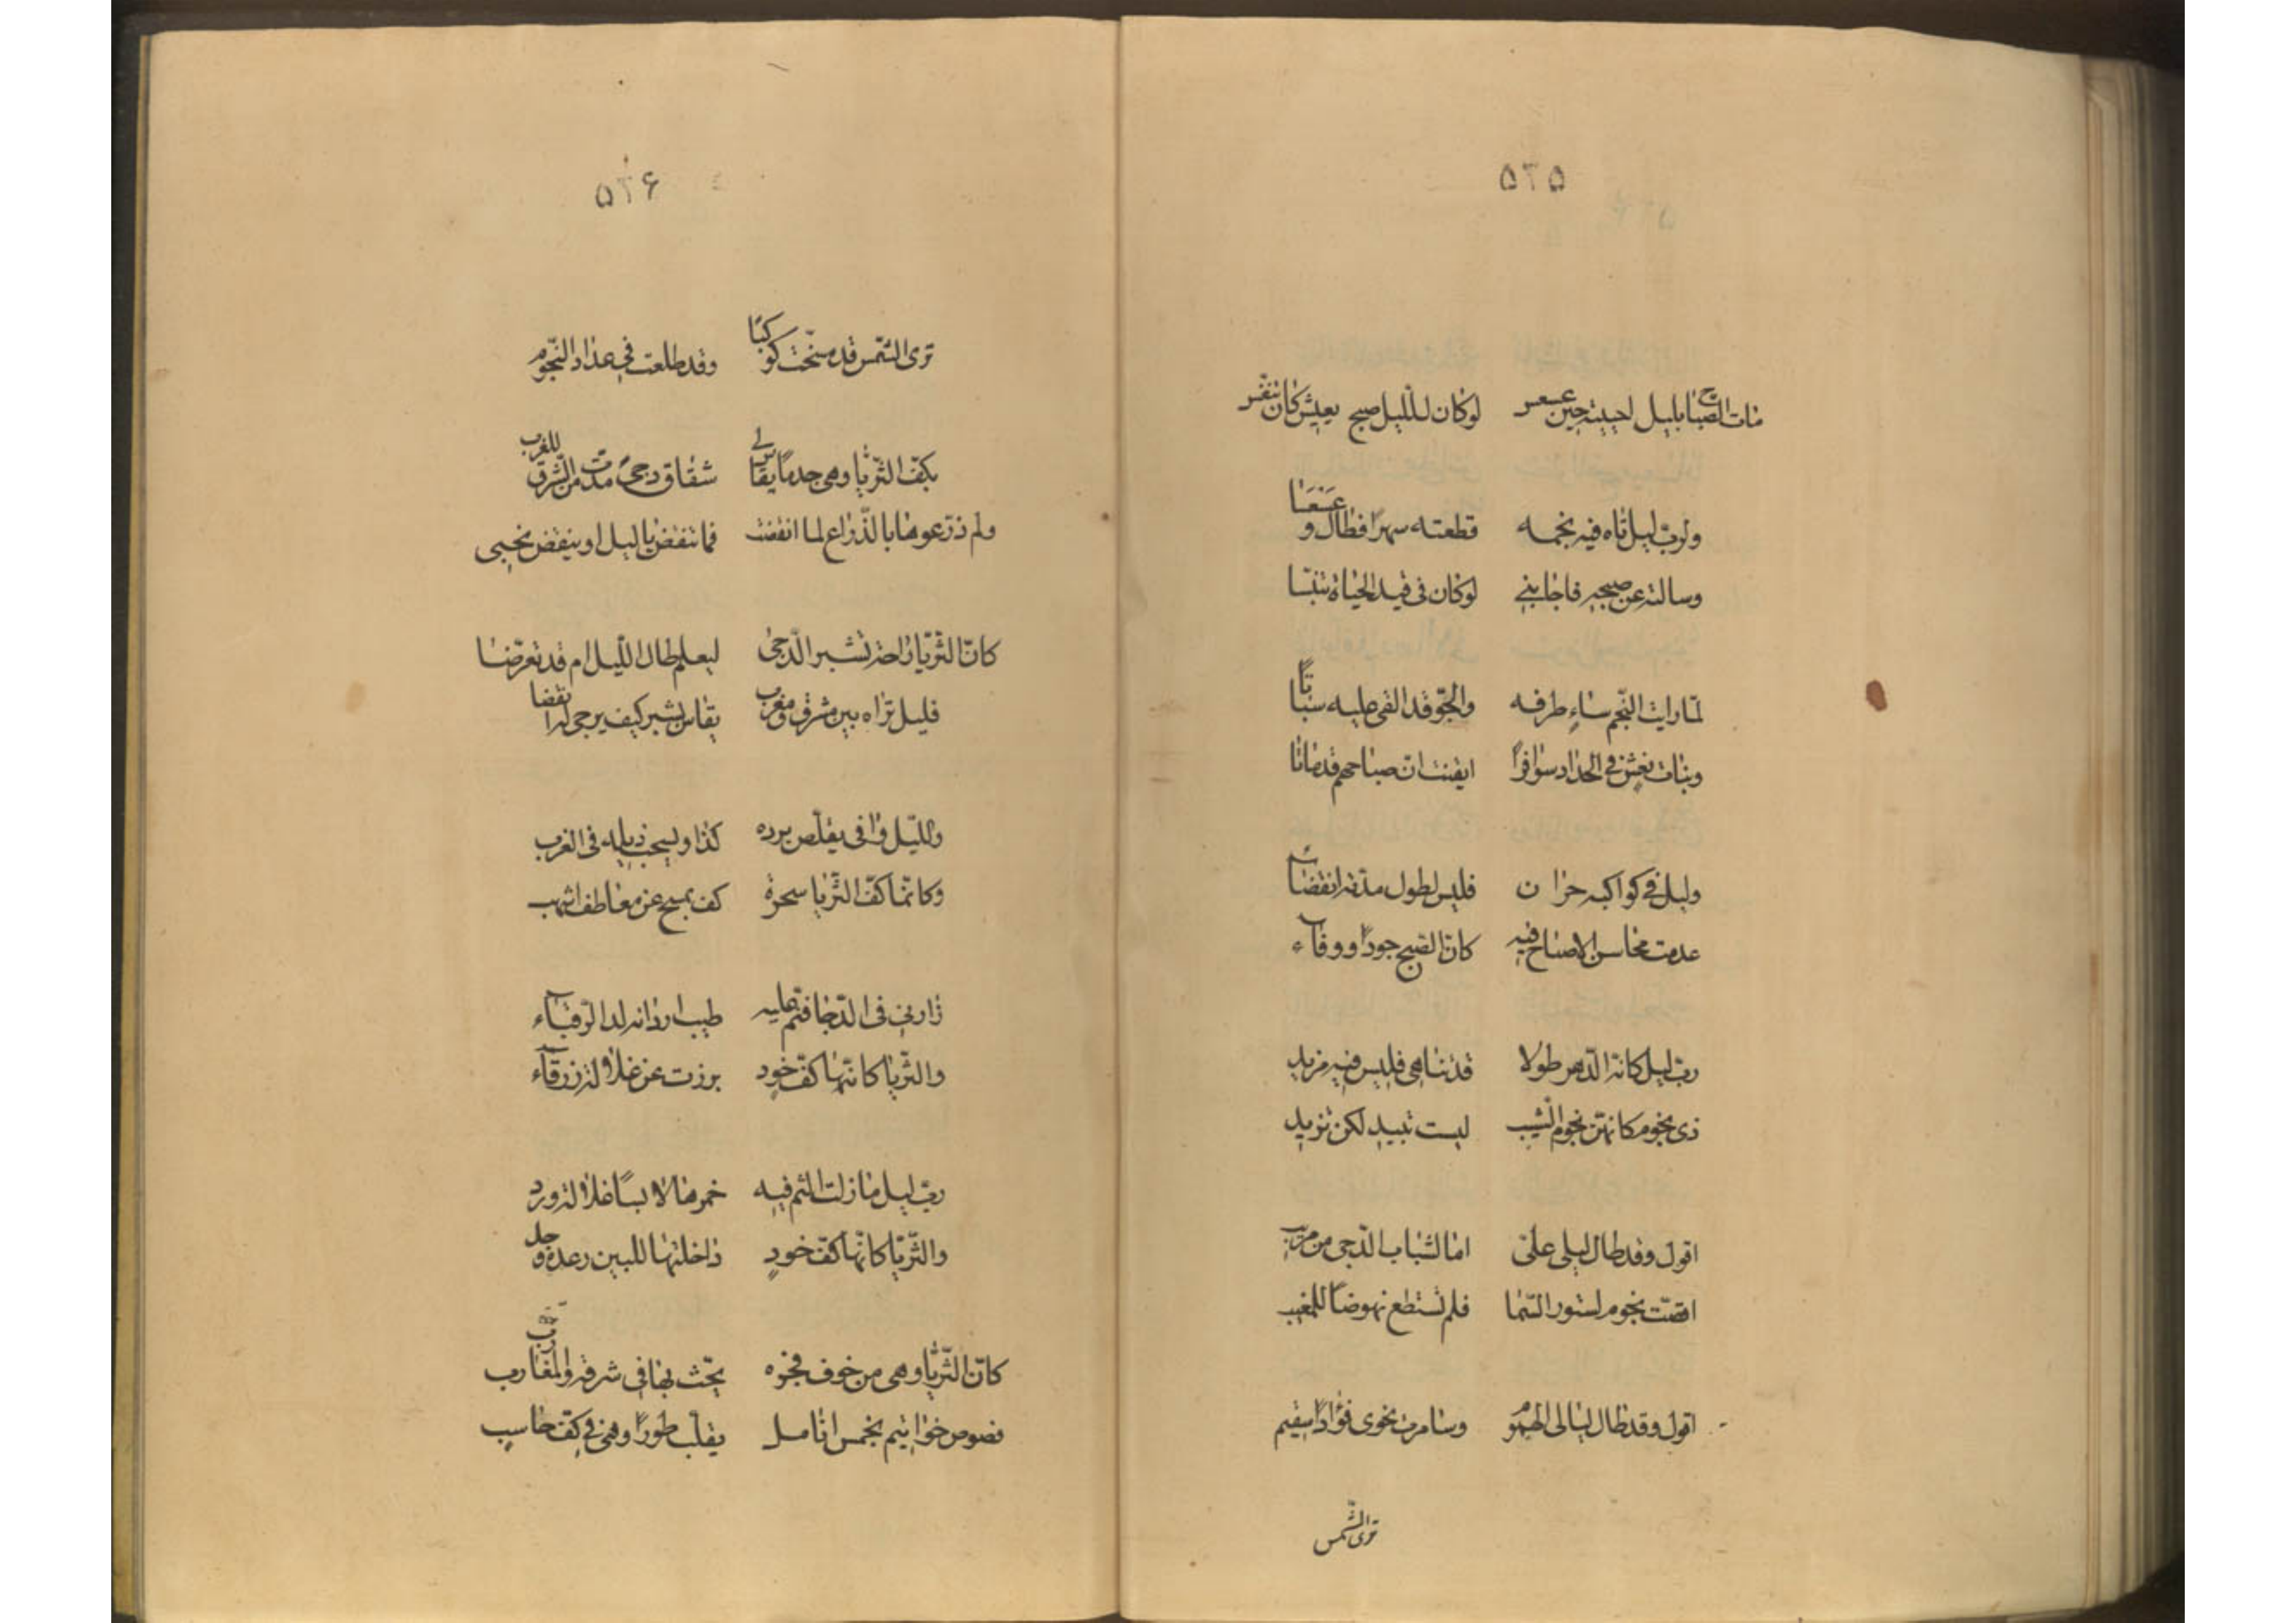 ۵۲۵
مات الصباح بليل احييته حين عسعس لوكان لليل صبح يعيش كان تنفس
ولرب ليل تاه فيه نجمه قطعته سهرا فطال وعسعسا
وسالته عن صبحه فاجابني لوكان في قيد الحياة تنفسا
لما رايت النجم ساه طرفه والجو قد القى عليه سباتا
وبنات نعش في الحداد سوافرا ايقنت ان صباحهم قد ماتا
وليل في كواكبه حران فليس لطول مدته انقضاء
عدمت محاسن الاصباح فيه كان الصبح جود او وفاء
رب ليل كانه الدهر طولا قد تناهى فليس فيه مزيد
ذى نجوم كانهن نجوم الشيب ليست تبيد لكن تزيد
اقول وقد طال ليلى على اما لشباب الدجى من مشيب
نجوم السما فلم تستطع نهوضا للمغيب
اقول وقد طال ليالى الهموم وسامرت نجوى فؤاد سقيم
ترى الشمس
۵۲۶
ترى الشمس قد مسخت كوكبا وقد طلعت في عداد النجوم
بكف الثريا وهى جدما يقاس لى شقاق دجى مدت من الشرق للغرب
ولم ذرعوها بالذراع لما انقضت فما تنقضى يا ليل او ينقضى نحبى
كان الثريا راحة تشبر الدجى ليعلم طال الليل ام قد تعرضا
فليل تراه بين مشرق ومغرب يقاس بشبر كيف يرجى له انقضا
ولليل وافى يقلص برده كذا ويسحب ذيله في الغرب
وكانما كف الثريا سحرة كف يمسح عن معاطف اشهب
زارني في الدجا فنم عليه طيب اردانه لدا الرقباء
والثريا كانها كف خود برزت عن غلالة زرقاء
رب ليل ما زلت الثم فيه خمرها لابسا غلالة ورد
والثريا كانها كف خود داخلتها للبين رعدة وجد
كان الثريا وهى من خوف فجره يحث بها في شرقه والمغارب
فصوص خواتيم بخمس انامل يقلب طورا وهى في كف حاسب